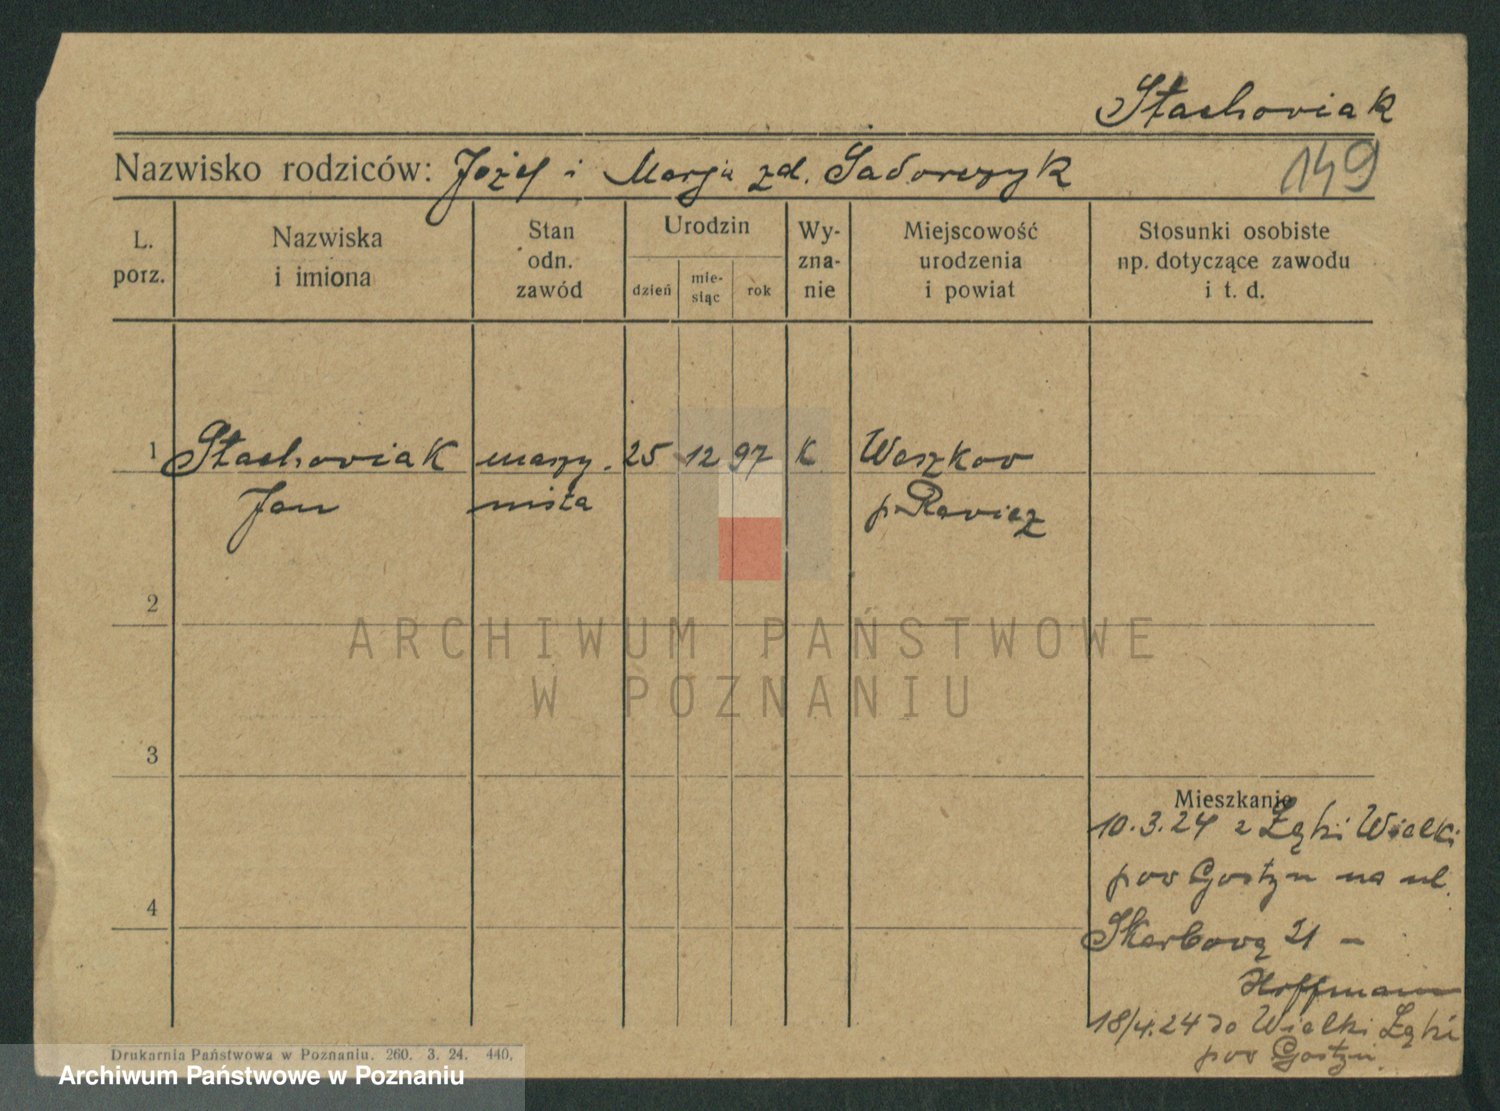 Stachoviak
Nazwisko rodziców: Józef i Marja zd. Sadorczyk
149
L. porz.
Nazwiska i imiona
Stan odn. zawód
Urodzin
dzień
mie- siąc
rok
Wy- zna- nie
Miejscowość urodzenia i powiat
Stosunki osobiste np. dotyczące zawodu i t. d.
1 Stachoviak maszy. 25 12 97 K Waszkov
Jan nista p. Ravicz
ARCHIWUM PAŃSTWOWE
W POZNANIU
2
3
4
Mieszkanie
10.3.24 z Łęki Wielki
pow Gostyn na ul.
Skarbovą 21 –
Hoffmann
18/4.24 do Wielki Łęki
pow Gostyn.
Drukarnia Państwowa w Poznaniu. 260. 3. 24. 440.
Archiwum Państwowe w Poznaniu